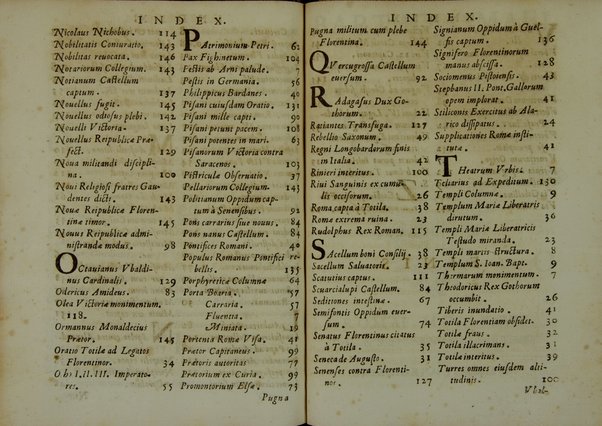 INDEX.
Nicolaus Nichobus. 114
Nobilitatis Coniuratio. 143
Nobilitas reuocata. 146
Notariorum Collegium. 143
Notianum Castellum
captum. 137
Nouellus fugit. 145
Nouellus odiosus plebi. 142
Nouelli Victoria. 137
Nouellus Reipublicæ Præ
fect. 129
Noua militandi discipli
na. 130
Noui Religiosi fratres Gau
dentes dicti. 143
Nouæ Reipublicæ Floren
tinæ timor. 145
Nouus Reipublicæ admi-
nistrandæ modus. 98
Octauianus Vbaldi
nus Cardinalis. 129
Odericus Amideus. 83
Olea Victoriæ monimentum.
118.
Ormannus Monaldecius
Prætor. 145
Oratio Totilæ ad Legatos
Florentinor. 34
Obs I.II.III. Imperato-
res. 55
Patrimonium Petri. 62
Pax Fighnetum. 104
Pestis ab Arni palude. 7
Pestis in Germania. 56
Philippicus Bardanes. 40
Pisani cuiusdam Oratio. 131
Pisani mille capti. 90
Pisani petunt pacem. 103
Pisani potentes in mari. 63
Pisanorum Victoria contra
Saracenos. 103
Pistricula Obseruatio. 37
Pellariorum Collegium. 143
Politianum Oppidum cap-
tum à Senensibus. 92
Pons carrarius siue nouus. 84
Pons uanus Castellum. 84
Pontifices Romani. 40
Populus Romanus Pontifici re-
bellis. 135
Porphyreticæ Columnæ 64
Porta Boaria. 57
Carraria. 57
Fluentia. 7
Miniata. 19
Portenta Romæ Visa. 41
Prætor Capitaneus. 99
Prætoris autoritas 77
Prætorium ex Curia. 99
Promontorium Elsæ. 73
Pugna
INDEX.
Pugna militum cum plebe
Florentina. 144
Quercugrossa Castellum
euersum. 92
Radagasus Dux Go-
thorum. 22
Ratiantes Transfuga. 127
Rebellio Saxonum. 49
Regni Longobardorum finis
in Italia. 42
Rinieri interitus. 160
Riui Sanguinis ex cumu-
lis occisorum. 26
Roma capta à Totila. 38
Romæ extrema ruina. 23
Rudolphus Rex Roman. 115
Sacellum boni Consilij. 38
Sacellum Saluatoris. 23
Scatutius captus. 111
Scuarcialupi Castellum. 84
Seditiones intestinæ. 67
Semifontis Oppidum euer-
sum. 74
Senatus Florentinus citatus
à Totila. 35
Seneca de Augusto. 31
Senenses contra Florenti-
nos. 127
Signianum Oppidum à Guel-
fis captum. 136
Signifero Florentinorum
manus abscissa. 128
Sociomenus Pistoiensis. 43
Stephanus II. Pont. Gallorum
opem implorat. 41
Stiliconis Exercitus ab Ala-
rico dissipatus. 23
Supplicationes Romæ institu-
tæ. 41
Thearum Vrbis. 7
Teliarius ad Expeditum. 130
Templi Columnæ. 9
Templum Mariæ Libratri-
dirutum. 36
Templi Mariæ Liberatricis
Testudo miranda. 23
Templi martis structura. 8
Templum S. Ioan. Bapt. 9
Thermarum monimentum. 7
Theodoricus Rex Gothorum
occumbit. 26
Tiberis inundatio. 41
Totila Florentiam obsidet. 30
Totilæ fraus. 32
Totila illacrimans. 31
Totilæ interitus. 39
Turres omnes eiusdem alti-
tudinis. 100